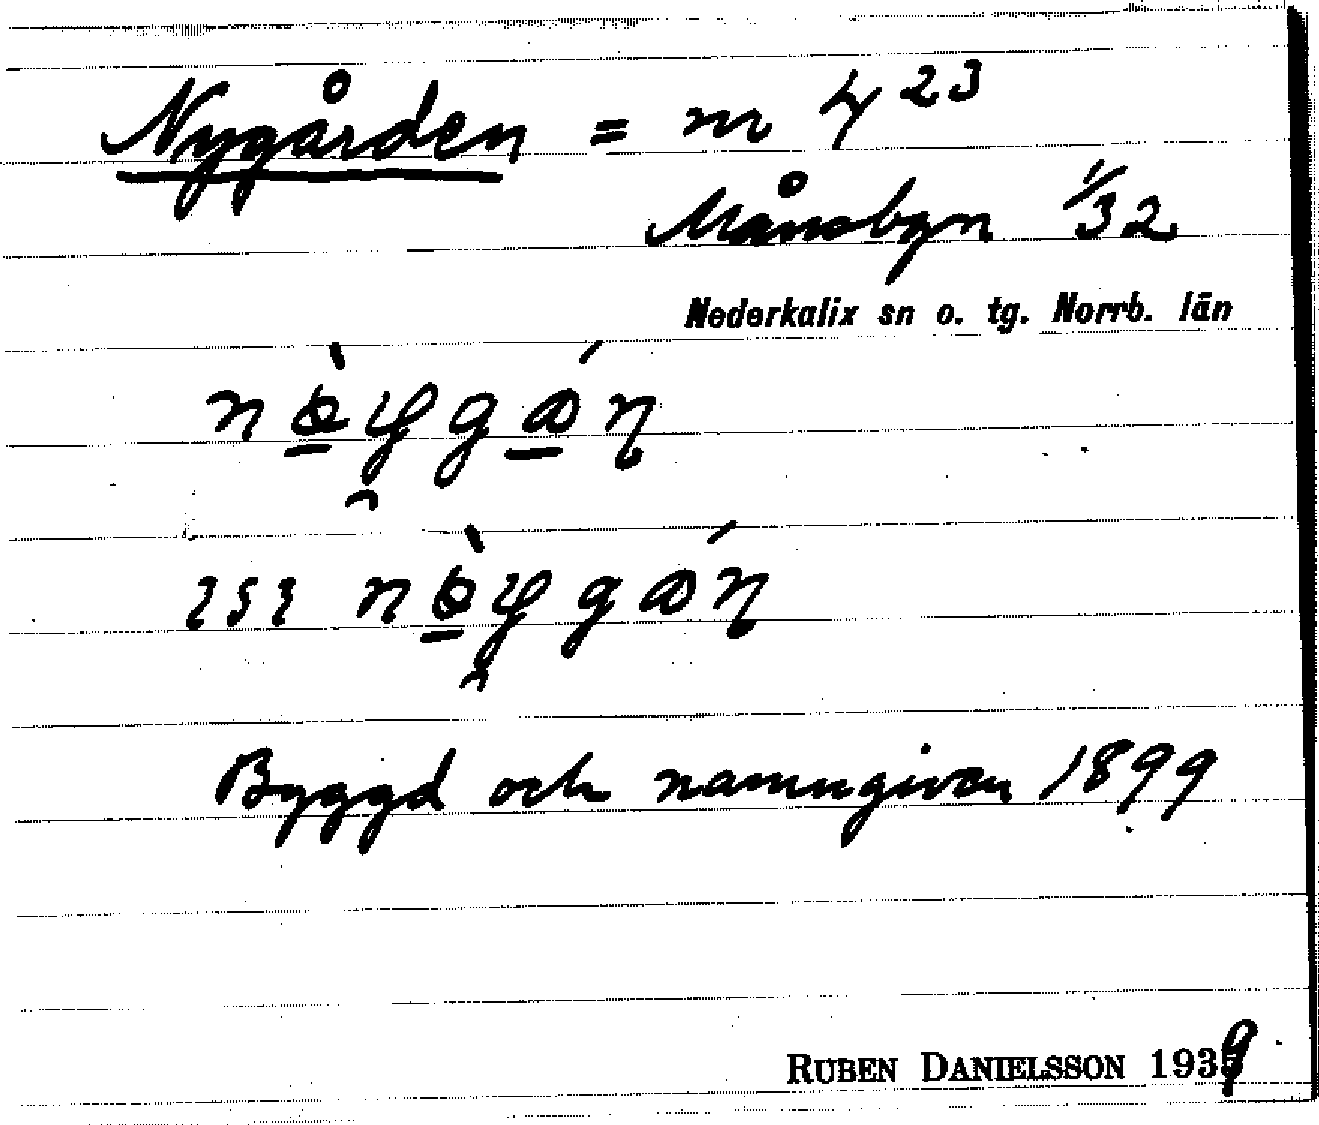 Nygården = nr 4²³
Månsbyn 1/32
Nederkalix sn o. tg. Norrb. län
Byggd och namngiven 1899
RUBEN DANIELSSON 1939